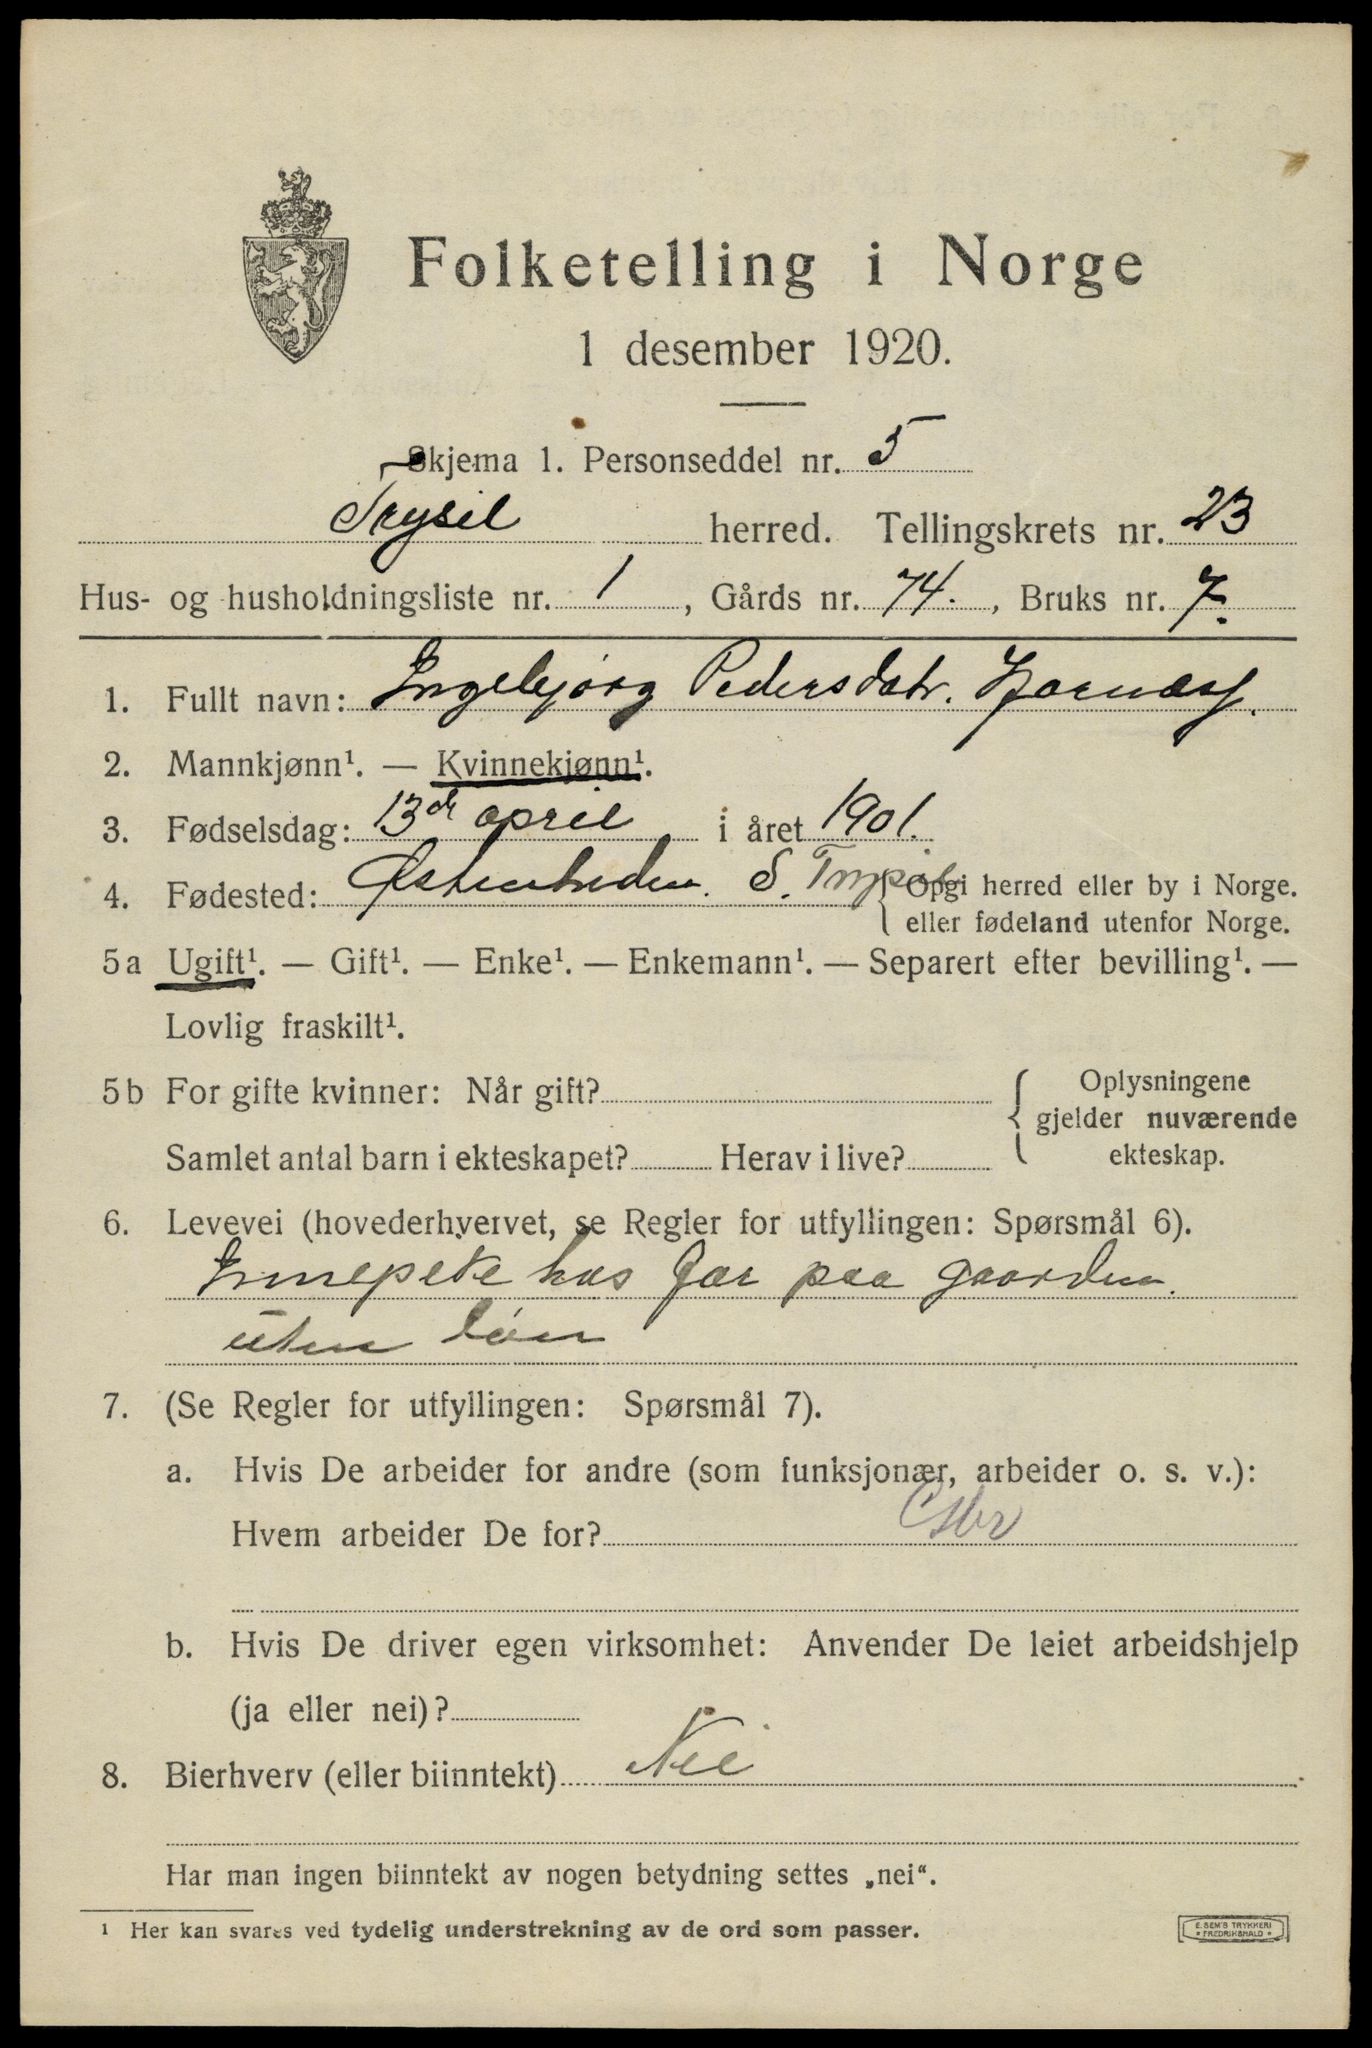 Folketelling i Norge
1 desember 1920.
Skjema 1. Personseddel nr. 5
Trysil herred. Tellingskrets nr. 23
Hus- og husholdningsliste nr. 1, Gårds nr. 74., Bruks nr. 7.
1. Fullt navn: Ingebjørg Pedersdatr.
2. Mannkjønn¹. — Kvinnekjønn¹.
3. Fødselsdag: 13de april i året 1901.
4. Fødested: S. Trysil { Opgi herred eller by i Norge.
eller fødeland utenfor Norge.
5a Ugift¹. — Gift¹. — Enke¹. — Enkemann¹. — Separert efter bevilling¹. —
Lovlig fraskilt¹.
5b For gifte kvinner: Når gift? { Oplysningene
gjelder nuværende
Samlet antal barn i ekteskapet? Herav i live? ekteskap.
6. Levevei (hovederhvervet, se Regler for utfyllingen: Spørsmål 6).
Innepike hos far paa gaarden.
uten løn
7. (Se Regler for utfyllingen: Spørsmål 7).
a. Hvis De arbeider for andre (som funksjonær, arbeider o. s. v.):
Hvem arbeider De for?
b. Hvis De driver egen virksomhet: Anvender De leiet arbeidshjelp
(ja eller nei)?
8. Bierhverv (eller biinntekt) Nei
Har man ingen biinntekt av nogen betydning settes „nei“.
¹ Her kan svares ved tydelig understrekning av de ord som passer.
E. SEM'S TRYKKERI
* FREDRIKSHALD *